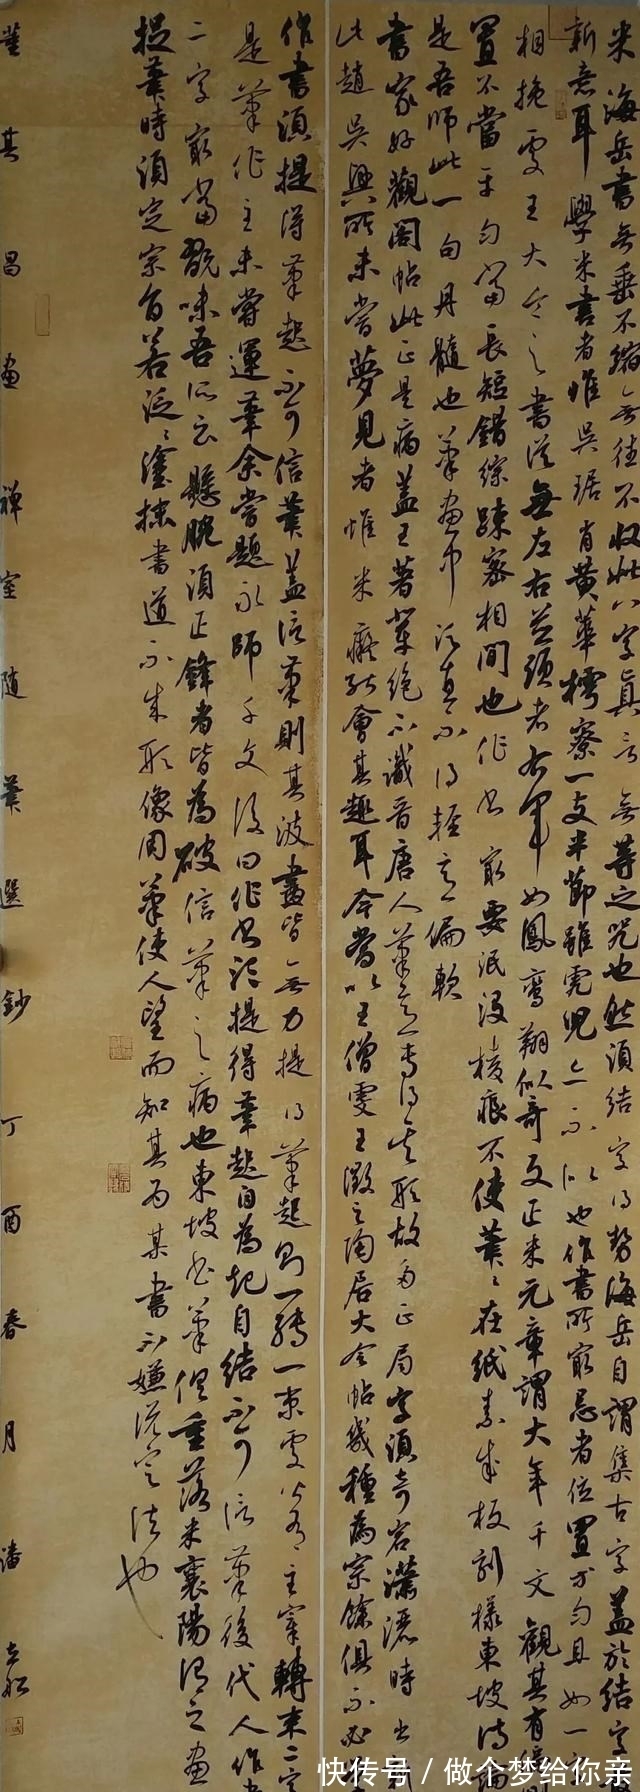 米海岳書無垂不縮無往不收此八字真言無等之咒也然須結字得勢海岳自謂集古字蓋於結字
新意耳學米書者惟吳琚肖黃華樗寮一支半節雖虎兒亦不似也作書所最忌者位置方勻且如一字
相挽處王大令之書從無左右並頭者右軍如鳳鸞翔似奇反正米元章謂大年千文觀其有偏
置不當平勻當長短錯綜疎密相間也作書最要泯沒棱痕不使筆〻在紙素成板刻樣東坡詩論
是吾師此一句丹髓也筆畫中須直不得輕意偏軟
書家好觀閣帖此正是病蓋王著輩絕不識晉唐人筆意專得其形故多正局字須奇宕瀟灑時出
此趙吳興所未嘗夢見者惟米癡能會其趣耳今當以王僧虔王徽之陶居大令帖幾種為宗餘俱不必
作書須提得筆起不可信筆蓋信筆則其波畫皆無力提得筆起則一轉一束處皆有主宰轉束二字
是筆作主未嘗運筆余嘗題永師千文後曰作書須提得筆起自為起自結不可信筆後代人作書
二字最當翫味吾所云懸腕須正鋒者皆為破信筆之病也東坡書筆俱重落米襄陽謂之畫
捉筆時須定宗旨若泛〻塗抹書道不成形像用筆使人望而知其為某書不嫌說定法也
董其昌畫禪室隨筆選鈔丁酉春月潘
快传号 / 做个梦给你亲